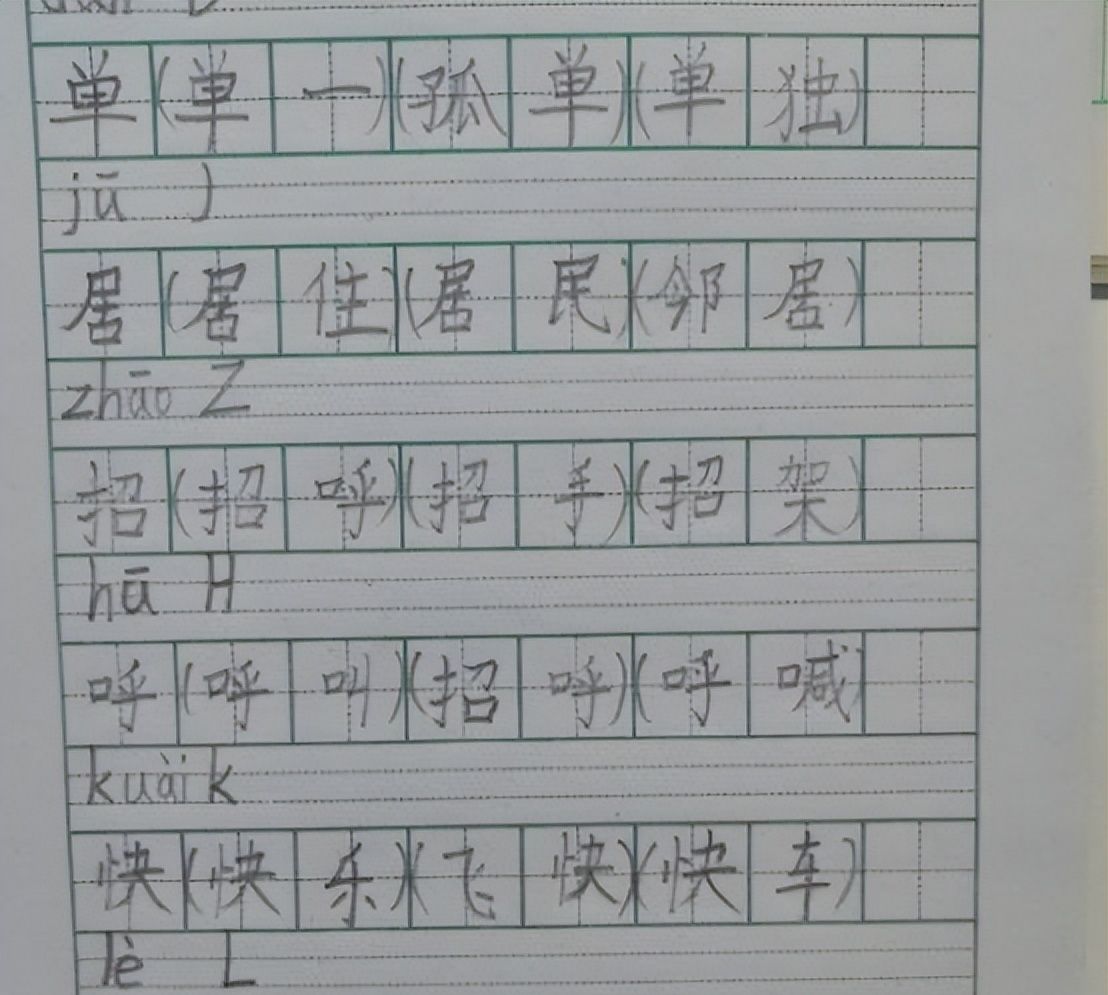 单(单一)(孤单)(单独)
jū J
居(居住)(居民)(邻居)
zhāo Z
招(招呼)(招手)(招架)
hū H
呼(呼叫)(招呼)(呼喊)
kuài k
快(快乐)(飞快)(快车)
lè L